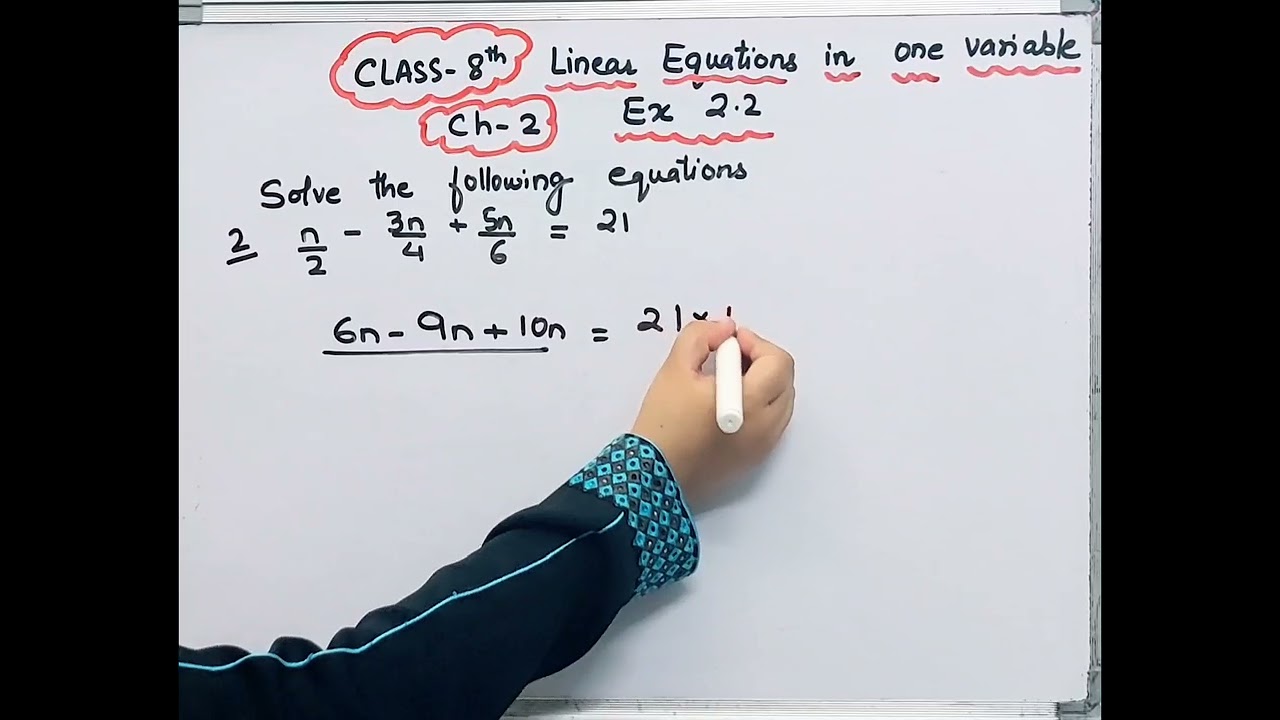 CLASS-8th Linear Equations in one variable
Ch-2 Ex 2.2
Solve the following equations
2 n/2 - 3n/4 + 5n/6 = 21
6n - 9n + 10n = 21 ×